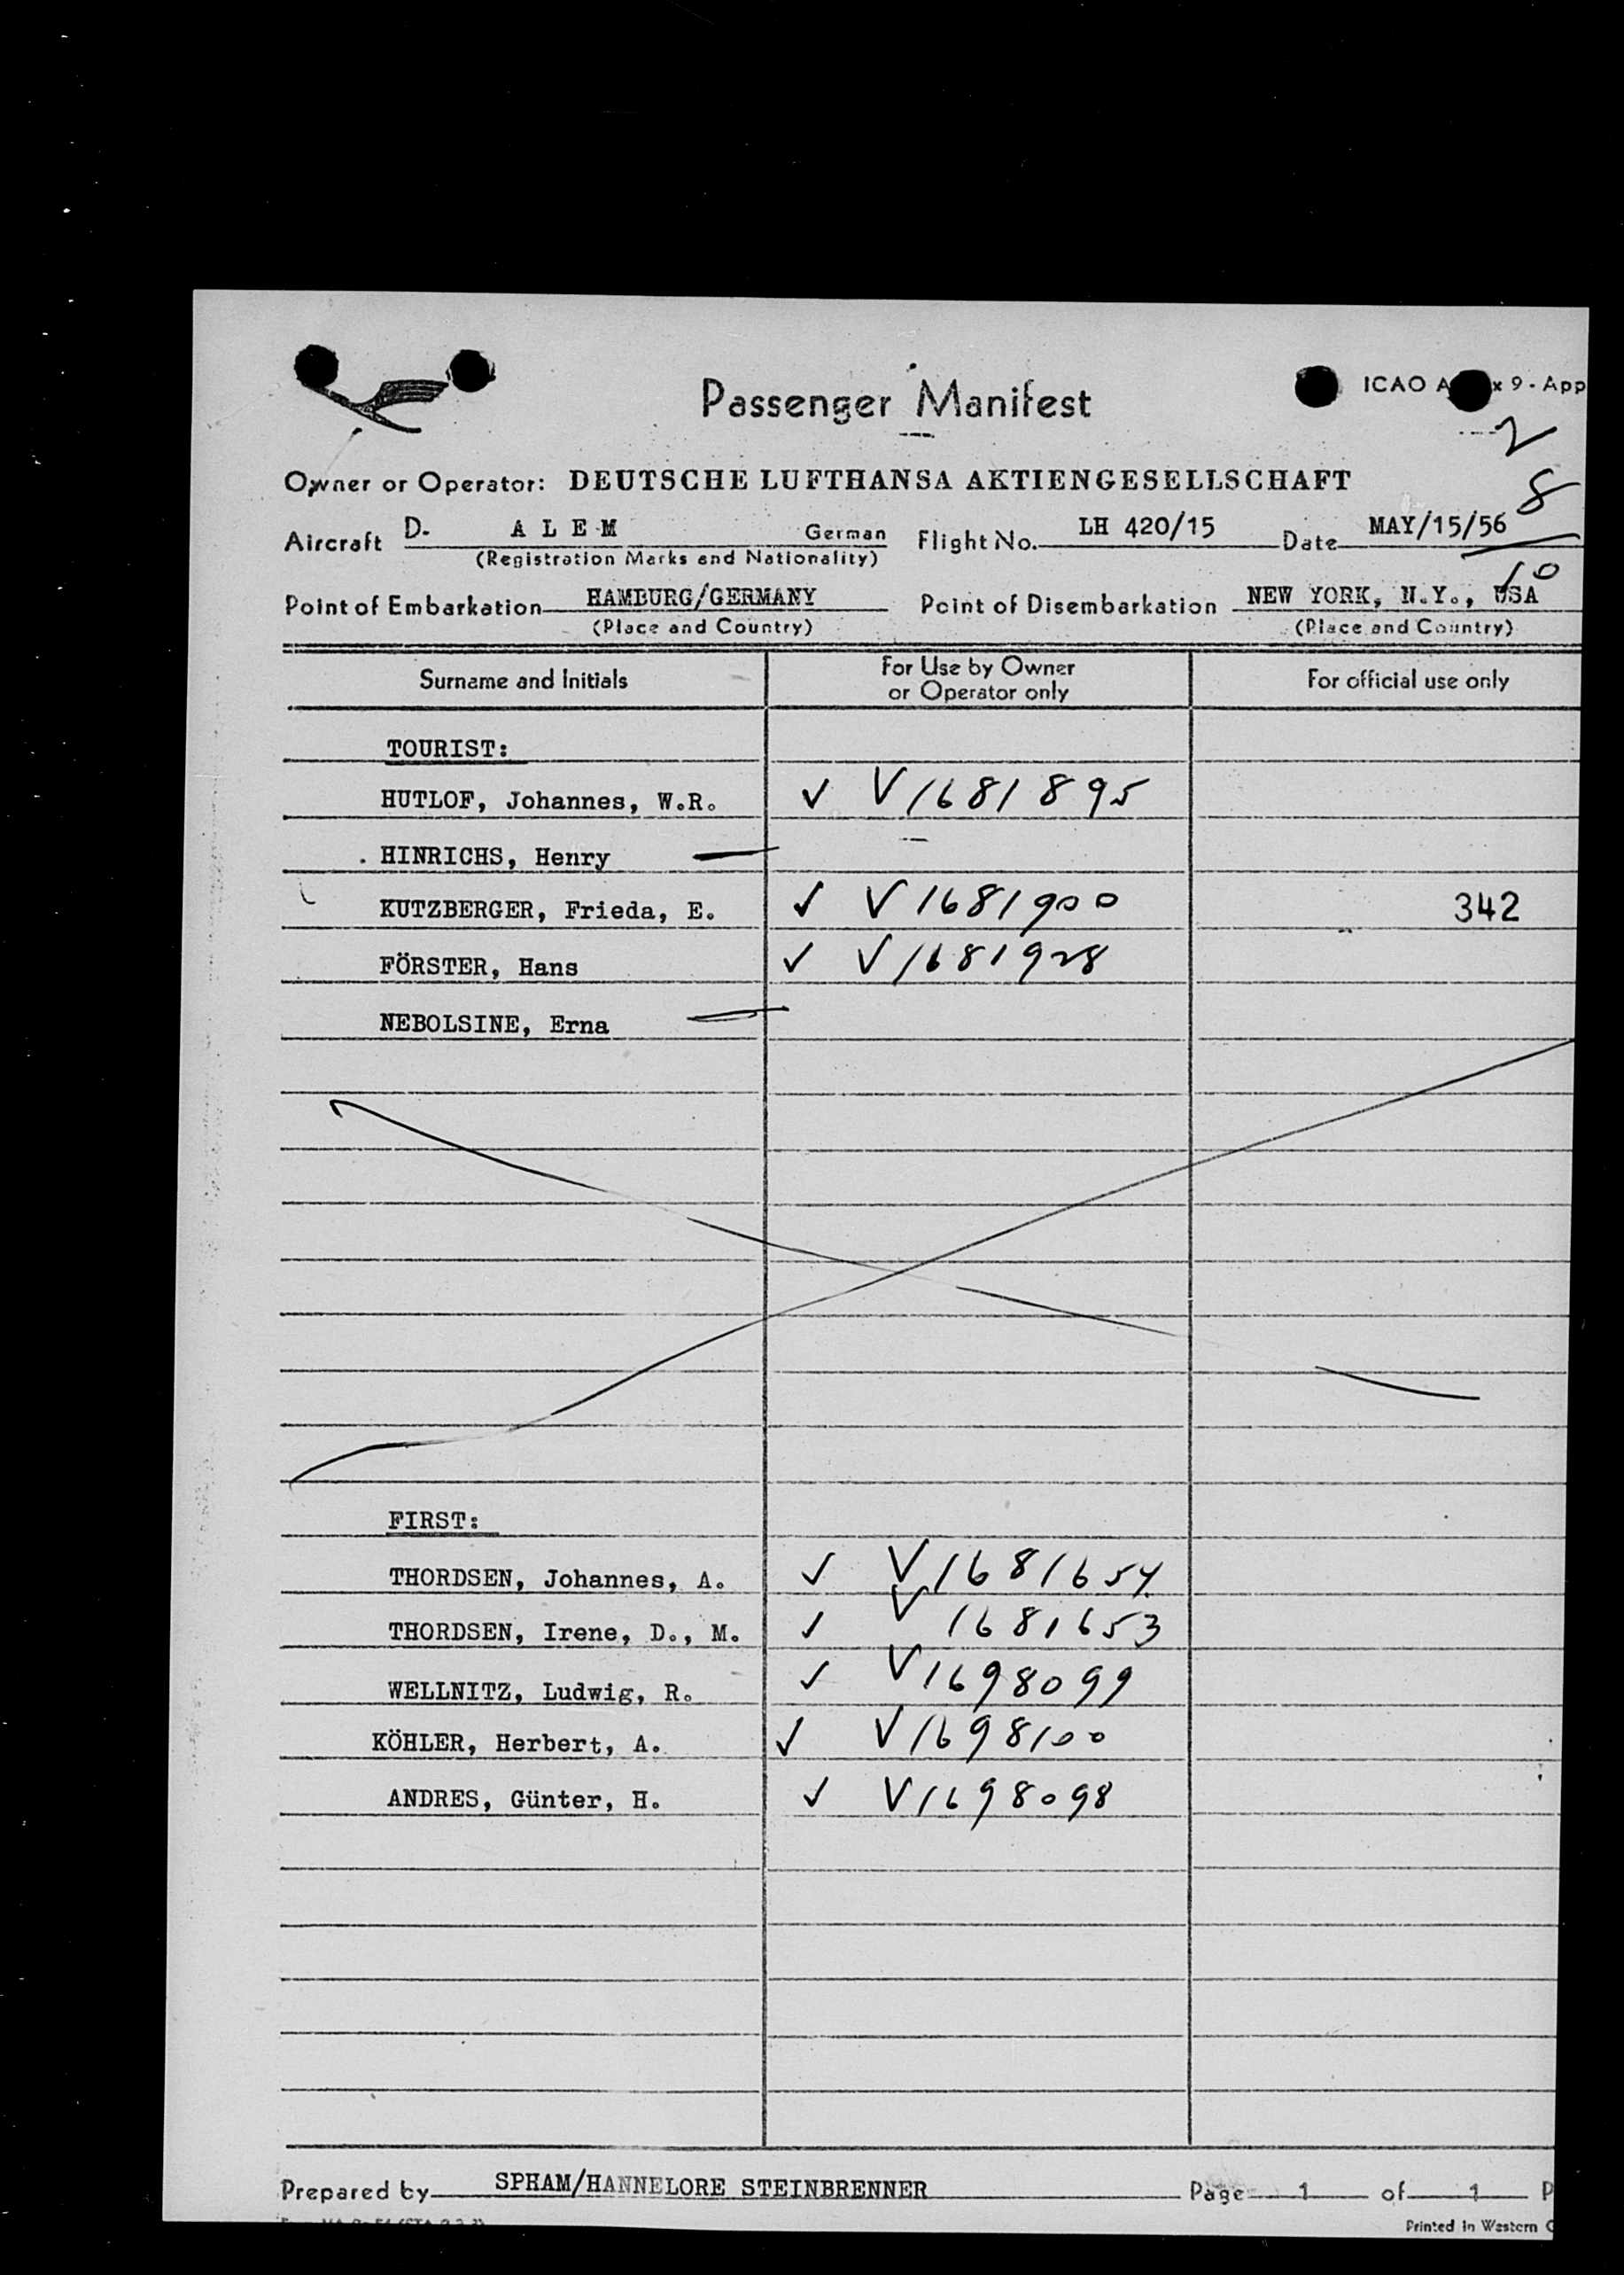 Passenger Manifest
ICAO A x 9 - App
2
8
10
Owner or Operator: DEUTSCHE LUFTHANSA AKTIENGESELLSCHAFT
Aircraft D. A L E M German Flight No. LH 420/15 Date MAY/15/56
(Registration Marks and Nationality)
Point of Embarkation HAMBURG/GERMANY Point of Disembarkation NEW YORK, N.Y., USA
(Place and Country) (Place and Country)
Surname and Initials For Use by Owner or Operator only For official use only
TOURIST:
HUTLOF, Johannes, W.R. ✓ V1681895
HINRICHS, Henry —
KUTZBERGER, Frieda, E. ✓ V1681900 342
FÖRSTER, Hans ✓ V1681928
NEBOLSINE, Erna —
FIRST:
THORDSEN, Johannes, A. ✓ V1681654
THORDSEN, Irene, D., M. ✓ V1681653
WELLNITZ, Ludwig, R. ✓ V1698099
KÖHLER, Herbert, A. ✓ V1698100
ANDRES, Günter, H. ✓ V1698098
Prepared by SPHAM/HANNELORE STEINBRENNER Page 1 of 1 P
Printed in Western G